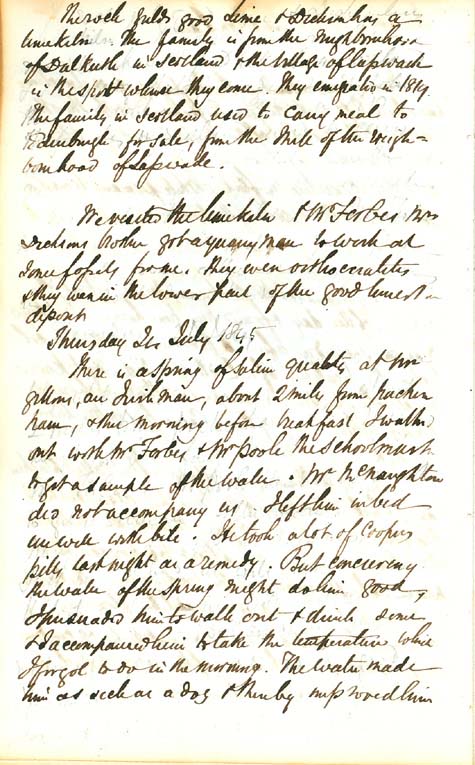 The rock yields good lime & Dickson has a
limekiln. The family is from the neighbourhood
of Dalkeith in Scotland & the village of Lasswade
is the spot whence they come. They emigrated in 1819.
The family in Scotland used to carry meal to
Edenburgh for sale, from the Mills of the neigh=
bourhood of Lasswade.
We visited the limekiln & Mr Forbes Mrs
Dicksons brother got a quarry man to work at
some fossils for me. They were orthoceratites
& they were in the lower part of the good limestone
deposit
Thursday 24 July 1845
There is a spring of saline quality at Mr
gillons, an Irishman, about 2 miles from Packen
ham, & this morning before breakfast I walked
out with Mr Forbes & Mr Poole the Schoolmaster
to get a sample of the water. Mr McNaughton
did not accompany us. I left him in bed
unwell with bile. He took a lot of Coopers
pills last night as a remedy. But conceiving
the water of the spring might do him good,
I persuaded him to walk out & drink some,
& I accompanied him to take the temperature which
I forgot to do in the morning. The water made
him as sick as a dog & thereby improved him